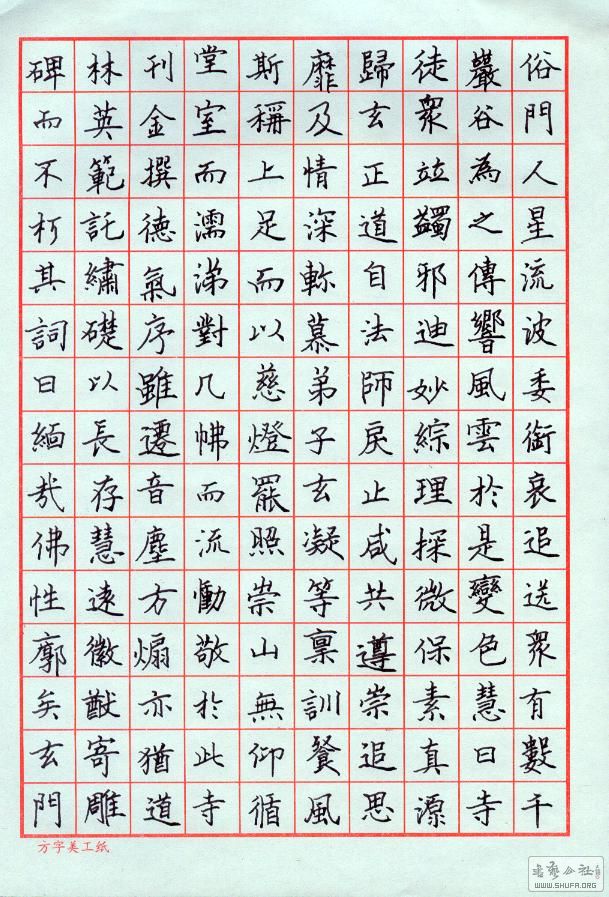 俗門人星流波委銜哀追送眾有數千
巖谷為之傳響風雲於是變色慧日寺
徒眾竝蠲邪迪妙綜理探微保素真源
歸玄正道自法師戾止咸共遵崇追思
靡及情深軫慕弟子玄凝等稟訓餐風
斯稱上足而以慈燈罷照崇山無仰循
堂室而濡涕對几而流慟敬於此寺
刊金撰德氣序雖遷音塵方煽亦猶道
林英範託繡礎以長存慧遠徽猷寄雕
碑而不朽其詞曰緬哉佛性廓矣玄門
方字美工纸
书艺公社
WWW.SHUFA.ORG